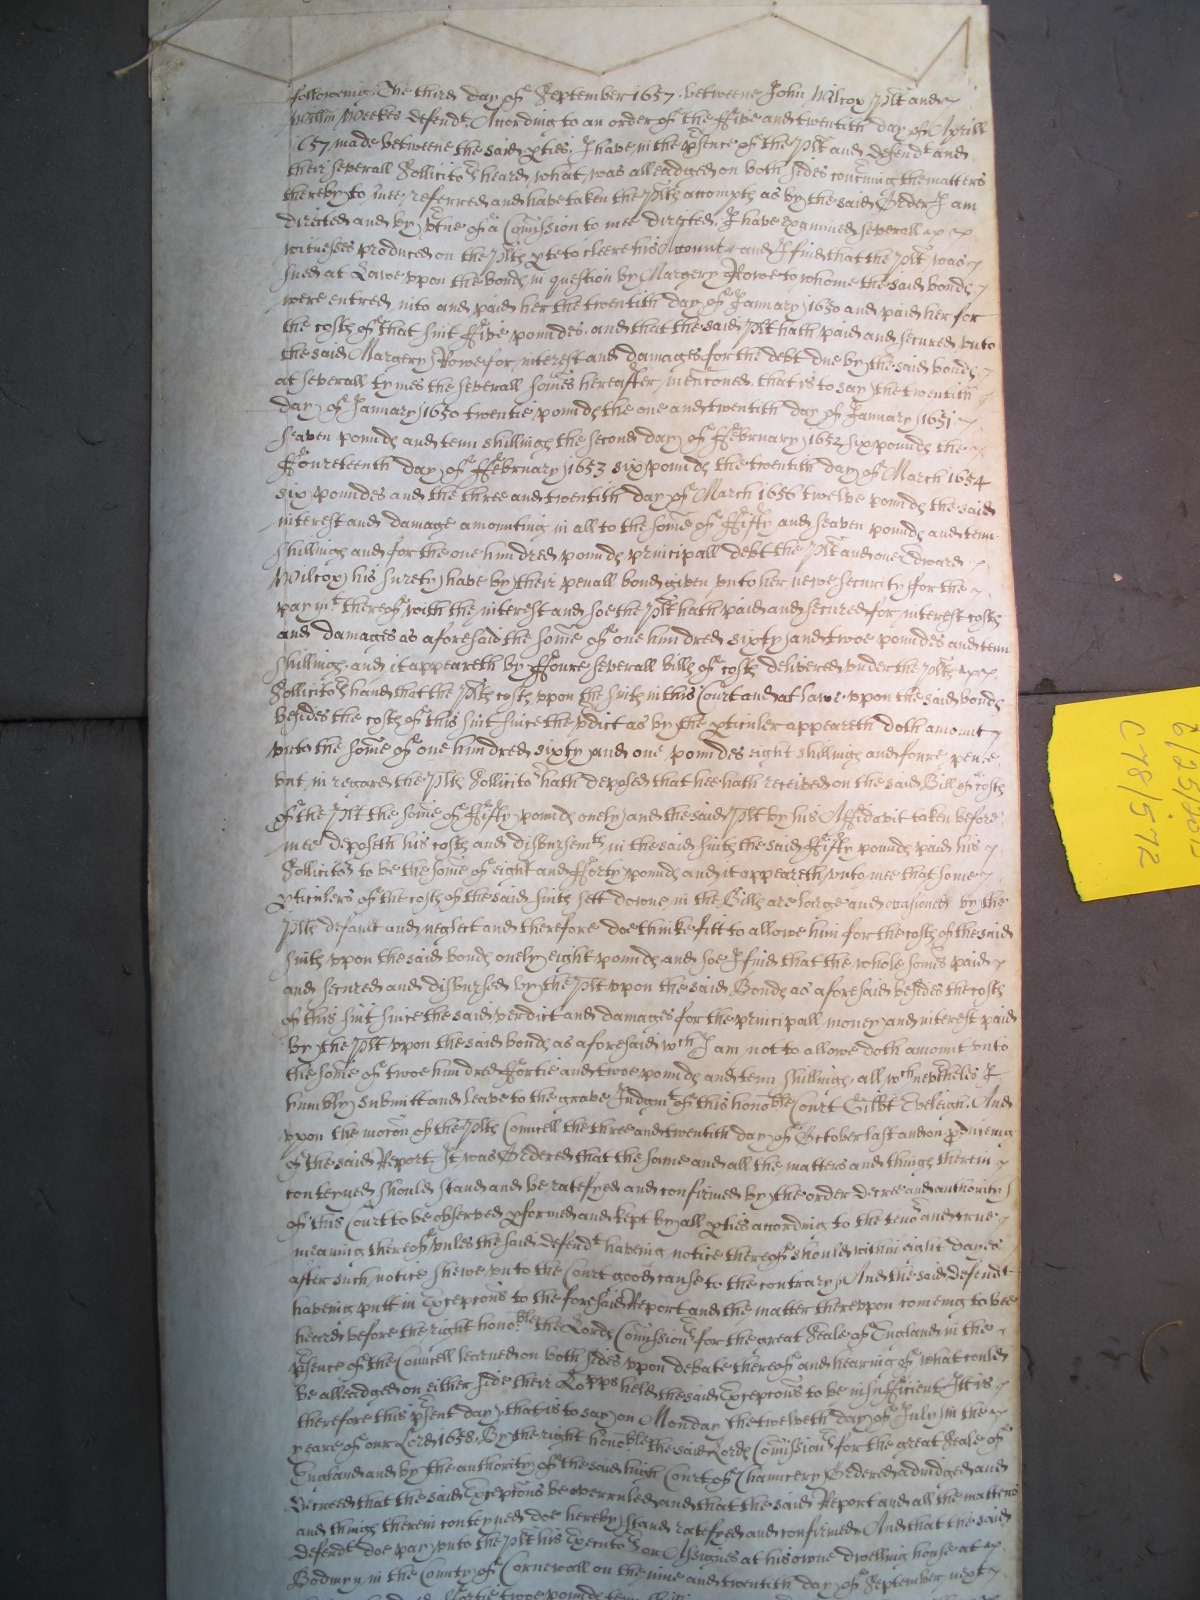 followeing The third day of September 1657 betweene John Wilcox Plt and
Willm Weekes defendt, According to an order of the ffive and twentith day of Aprill
1657 made betweene the said pties, I have in the psence of the Plt and defendt and
their severall Sollicitors heard what was alleadged on both sides concerning the matters
thereby to mee referred and have taken the Plts accompts as by the said Order I am
directed and by vtue of a Comission to mee directed, I have examined severall
witnesses produced on the Plts pte to cleere his Accounts and I find that the Plt was
sued at Lawe vpon the bonds in question by Margery Rowe to whome the said bonds
were entred into and paid her the twentith day of January 1650 and paid her for
the costs of that suit ffive poundes, and that the said Plt hath paid and secured vnto
the said Margery Rowe for interest and damages for the debt due by the said bonds
at severall tymes the severall somes hereafter mencioned, that is to say the twentith
day of January 1650 twentie pounds the one and twentith day of January 1651
seaven pounds and tenn shillings the second day of ffebruary 1652 six pounds the
ffourteenth day of ffebruary 1653 six pounds the twentith day of March 1654
six poundes and the three and twentith day of March 1656 twelve pounds the said
interest and damage amounting in all to the some of ffifty and seaven pounds and tenn
shillings and for the one hundred pounds principall debt the Plt and one Edward
Wilcox his surety have by their penall bond given vnto her newe security for the
paymt thereof with the interest and soe the Plt hath paid and secured for interest costs
and damages as aforesaid the some of one hundred sixty and twoe poundes and tenn
shillings, and it appeareth by ffoure severall bills of costs delivered vnder the Plts
Sollicitors hand that the Plts costs vpon the suits in this Court and at Lawe vpon the said bonds
besides the costs of this suit since the vdict as by the pticuler appeareth doth amount
vnto the some of one hundred sixty and one poundes eight shillings and foure pence
but in regard the Plts Sollicitor hath deposed that hee hath received on the said Bill of costs
of the Plt the some of ffifty pounds onely and the said Plt by his Affidavit taken before
mee deposeth his costs and disbursemts in the said suits the said ffifty pounds paid his
Sollicitor to be the some of eight and fforty pounds and it appeareth vnto mee that some
pticulers of the costs of the said suits sett downe in the Bills are large and occasioned by the
Plts default and neglect and therefore doe thinke fitt to allowe him for the costs of the said
suits vpon the said bonds onely eight pounds and soe I find that the whole somes paid
and secured and disbursed by the Plt vpon the said Bonds as aforesaid besides the costs
of this suit since the said verdict and damages for the principall money and interest paid
by the Plt vpon the said bonds as aforesaid wch I am not to allowe doth amount vnto
the some of twoe hundred ffortie and twoe pounds and tenn shillings, all wch nevtheles I
humbly submitt and leave to the grave Judgmt of this honoble Court Gilbt Eveleigh. And
vpon the mocon of the Plts Councell the three and twentith day of October last and on pduceing
of the said Report, It was Ordered that the same and all the matters and things therein
conteyned should stand and be ratefyed and confirmed by the order decree and authority
of this Court to be observed pformed and kept by all pties according to the tenor and true
meaning thereof vnles the said defendt having notice thereof should within eight dayes
after such notice shewe vnto the Court good cause to the contrary, And the said defendt
having putt in Excepcons to the foresaid Report and the matter therevpon comeing to bee
heard before the right honoble the Lords Comissionrs for the great Seale of England in the
psence of the Councell learned on both sides vpon debate thereof and hearing of what could
be alleadged on either side their Lopps held the said Excepcons to be insufficient, It is
therefore this psent day that is to say on Monday the twelveth day of July in the
yeare of our Lord 1658, By the right honoble the said Lords Comissionrs for the great Seale of
England and by the authority of the said high Court of Chauncery Ordered adiudged and
Decreed that the said Excepcons be overruled and that the said Report and all the matters
and things therein conteyned doe hereby stand ratefyed and confirmed. And that the said
defendt doe pay vnto the Plt his Executors or Assignes at his owne dwelling house at
Bodmyn in the County of Cornewall on the nine and twentith day of September next
ffortie twoe pounds tenn
C78/572